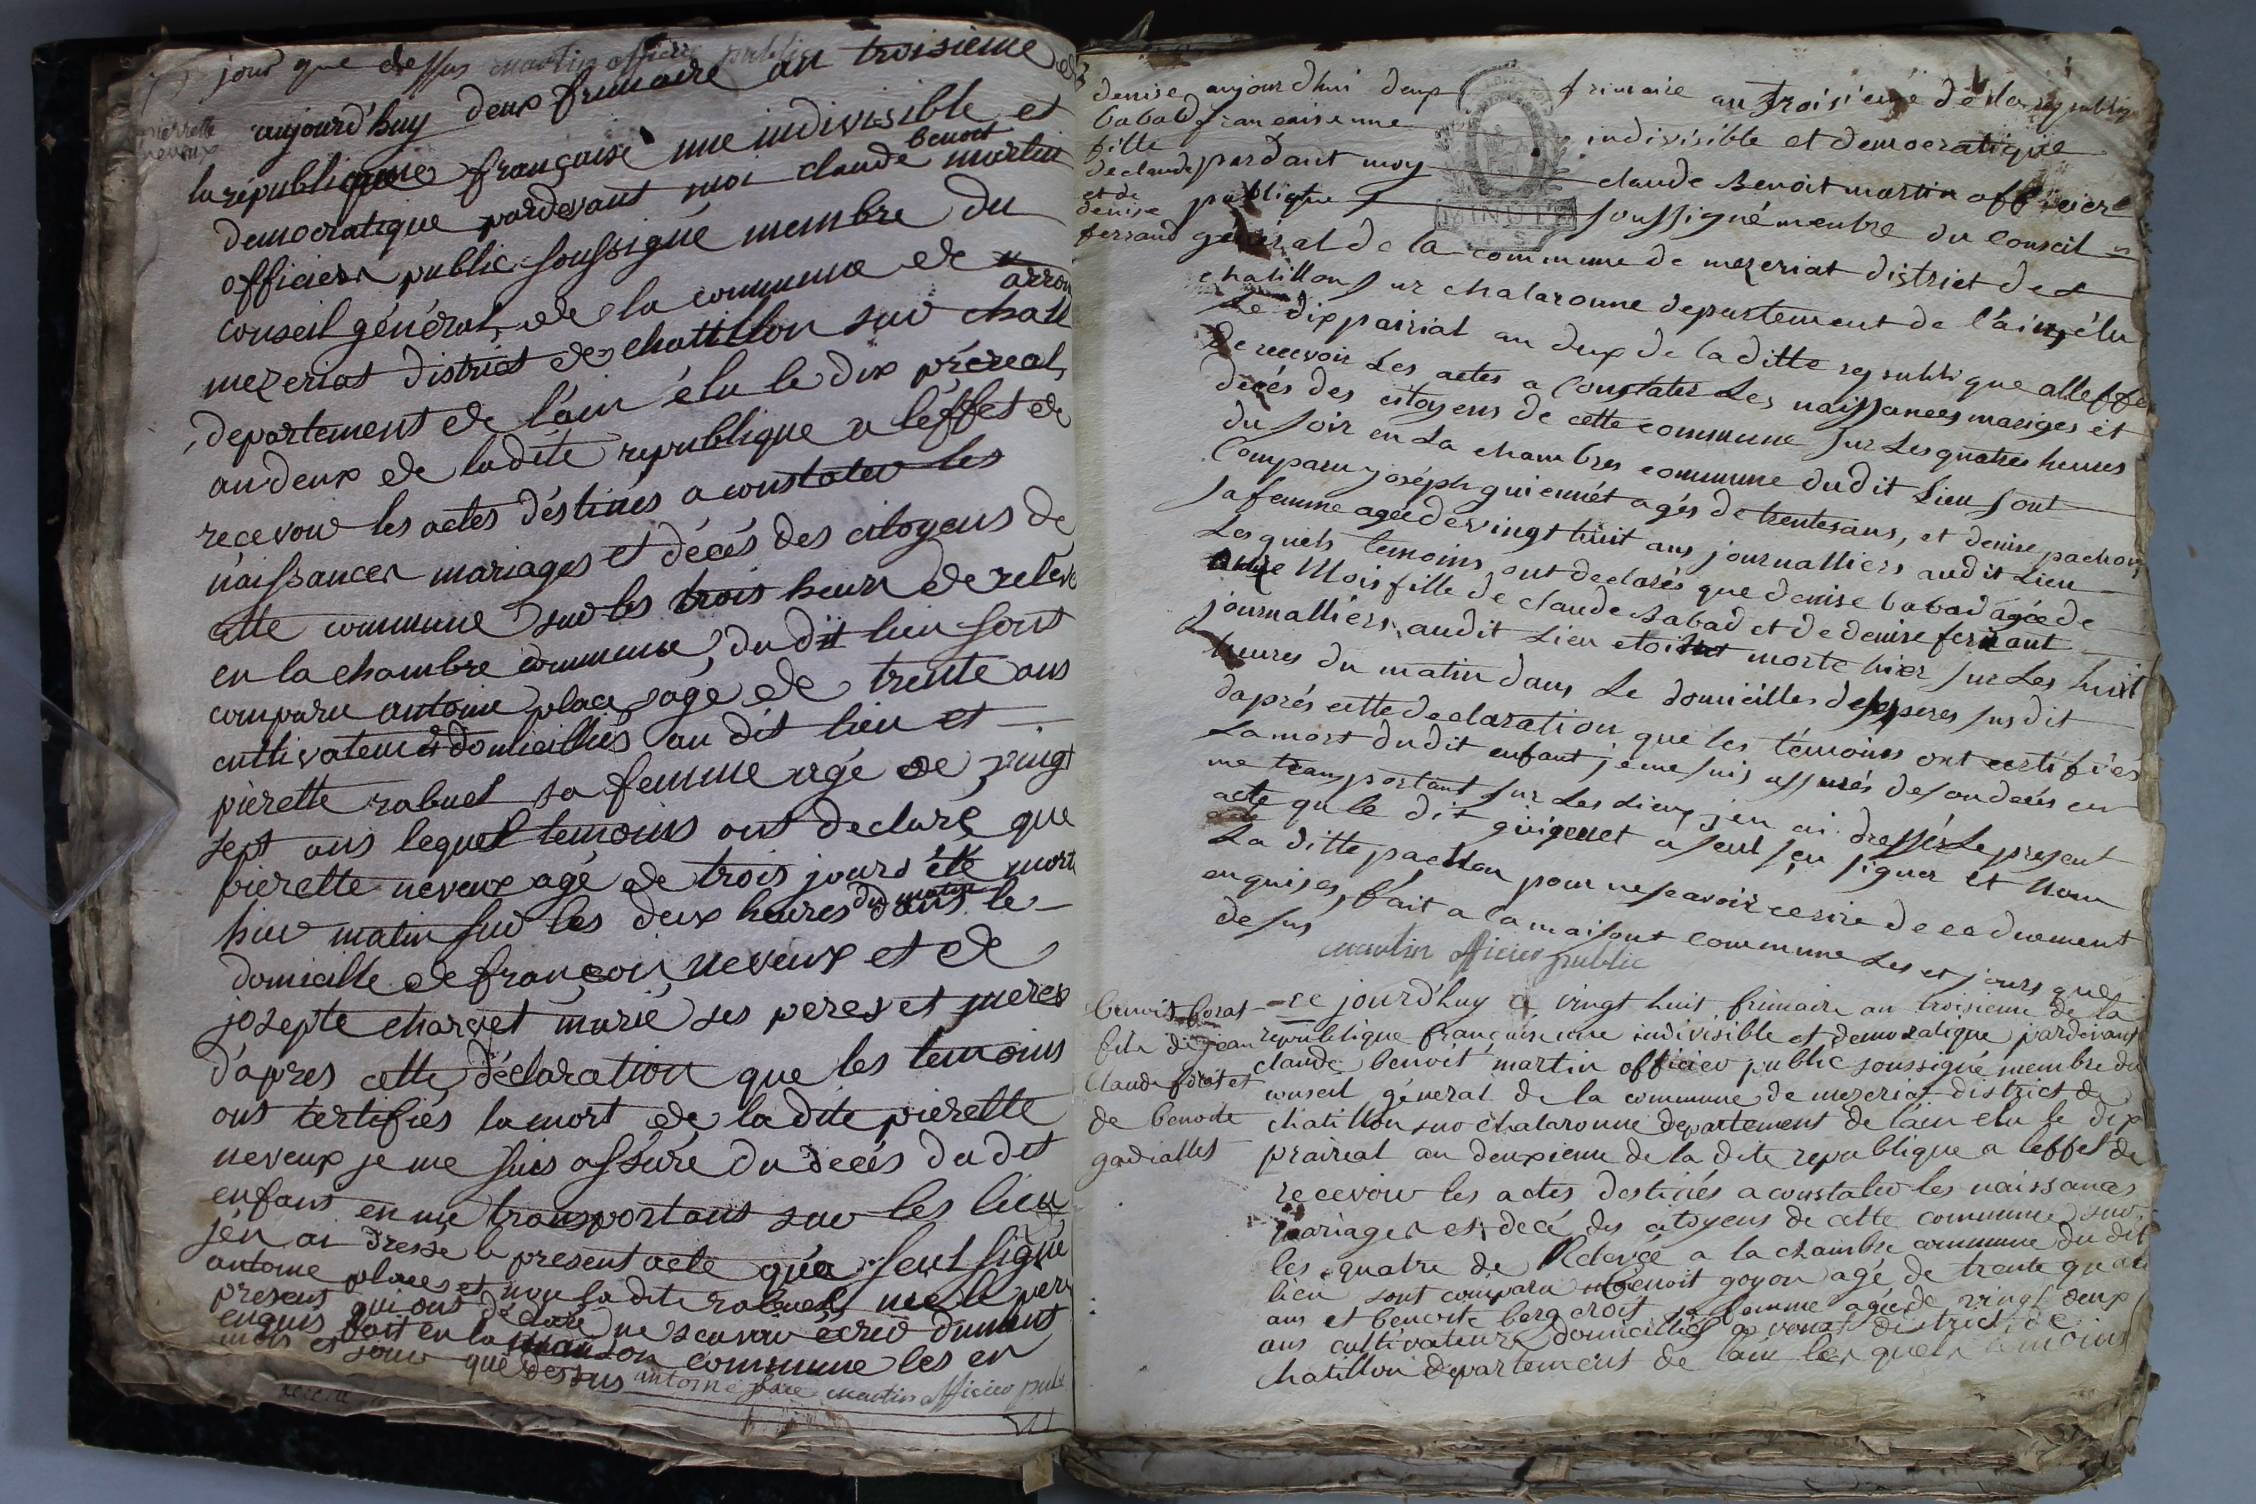 jour que dessus martin officie public
pierrette
neveux
aujourd'huy deux frimaire an troisieme de
la republique française une indivisible et
democratique pardevant moi claude benoit martin
officiers public soussigné membre du
conseil général de la commune de
mezeriat district de chatillon sur chall arron
departement de l'ain élu le dix préreal
an deux de ladite republique a léffet de
recevoir les actes déstinés a constater les
naissances mariages et décés des citoyens de
cette commune sur les trois heurs de relevé
en la chambre commune dudit lieu sont
comparu antoine place agé de trente ans
cultivateurs domicilliés au dit lieu et
pierette rabuel sa femme agé de vingt
sept ans lequel temoins ont declaré que
pierette neveux agé de trois jours été morte
hier matin sur les deux heures du matin dans le
domicille de françois neveux et de
josepte charvet marié ses peres et meres
d'apres cette déclaration que les temoins
ont certifiés la mort de la dite pierette
neveux je me suis assuré du decés dudit
enfant en me transportant sur les lieu
jén ai dressé le present acte qúa seul signé
antoine place et non la dite rabuel ne le pere
present qui ont déclaré ne scavoir écrir dument
enquis fait en la maison commune les en
mois et jour que dessus antoine place martin officier publ
denise
babad
fille
de claude
et de
denise
ferrand
aujourdhui deux frimaire an troisieme de la republiq
francaise une indivisible et democratique
pardvant moy claude Benoit martin officier
publique soussigné menbre du Conseil
general de la commune de mezeriat district de
chatillon sur chalaronne departement de l'ain, élu
Le dix pairial an deux de la ditte republique alleffe
de recevoir Les actes a Constater Les naissances mariges et
decés des citoyens de cette commune sur Les quatres heures
du soir en La chambres commune dudit Lieu sont
Comparu joséph guiennét agés de trentes ans, et denise pachon
sa femme ageé de vingt huit ans journalliers audit Lieu
Les quels temoins ont declarés que denise babad ageé de
onze Mois fille de claude Babad et de denise ferrant
journalliérs audit Lieu etoit morte hier sur Les huit
heures du matin dans Le domicilles de ses peres susdit
daprés cette declaration que les témoins ont certifiés
La mort dudit enfant je me suis assurés de son decés en
me transportant sur Les Lieux jen ai dressés Le present
acte qu Le dit guigenet a seul seu signer et Non
La ditte pachon pour ne scavoir ecrire de ce duement
enquises, fait a la maisont commune Les et jours que
de sus martin officier public
benoit borat
fils de jean
claude borat et
de benoite
gadialles
ce jourd'huy vingt huit frimaire an troisieme de la
republique française une indivisible et democratique pardevant
claude benoit martin officier public soussigné membre du
conseil géneral de la commune de mezeriat district de
chatillon sur chalaronne departement de l'ain elu le dix
praireal an deuxieme de la dite republique a leffet de
recevoir les actes destinés a constater les naissances
mariages et decé des citoyens de cette commune sur
les quatre de Relevée a la chambre commune du dit
lieu sont comparu benoit goyon agé de trente quatre
ans et benoite bergerot sa femme agée de vingt deux
ans cultivateurs domicilliés a vonat district de
chatillon departement de l'ain lesquels temoins